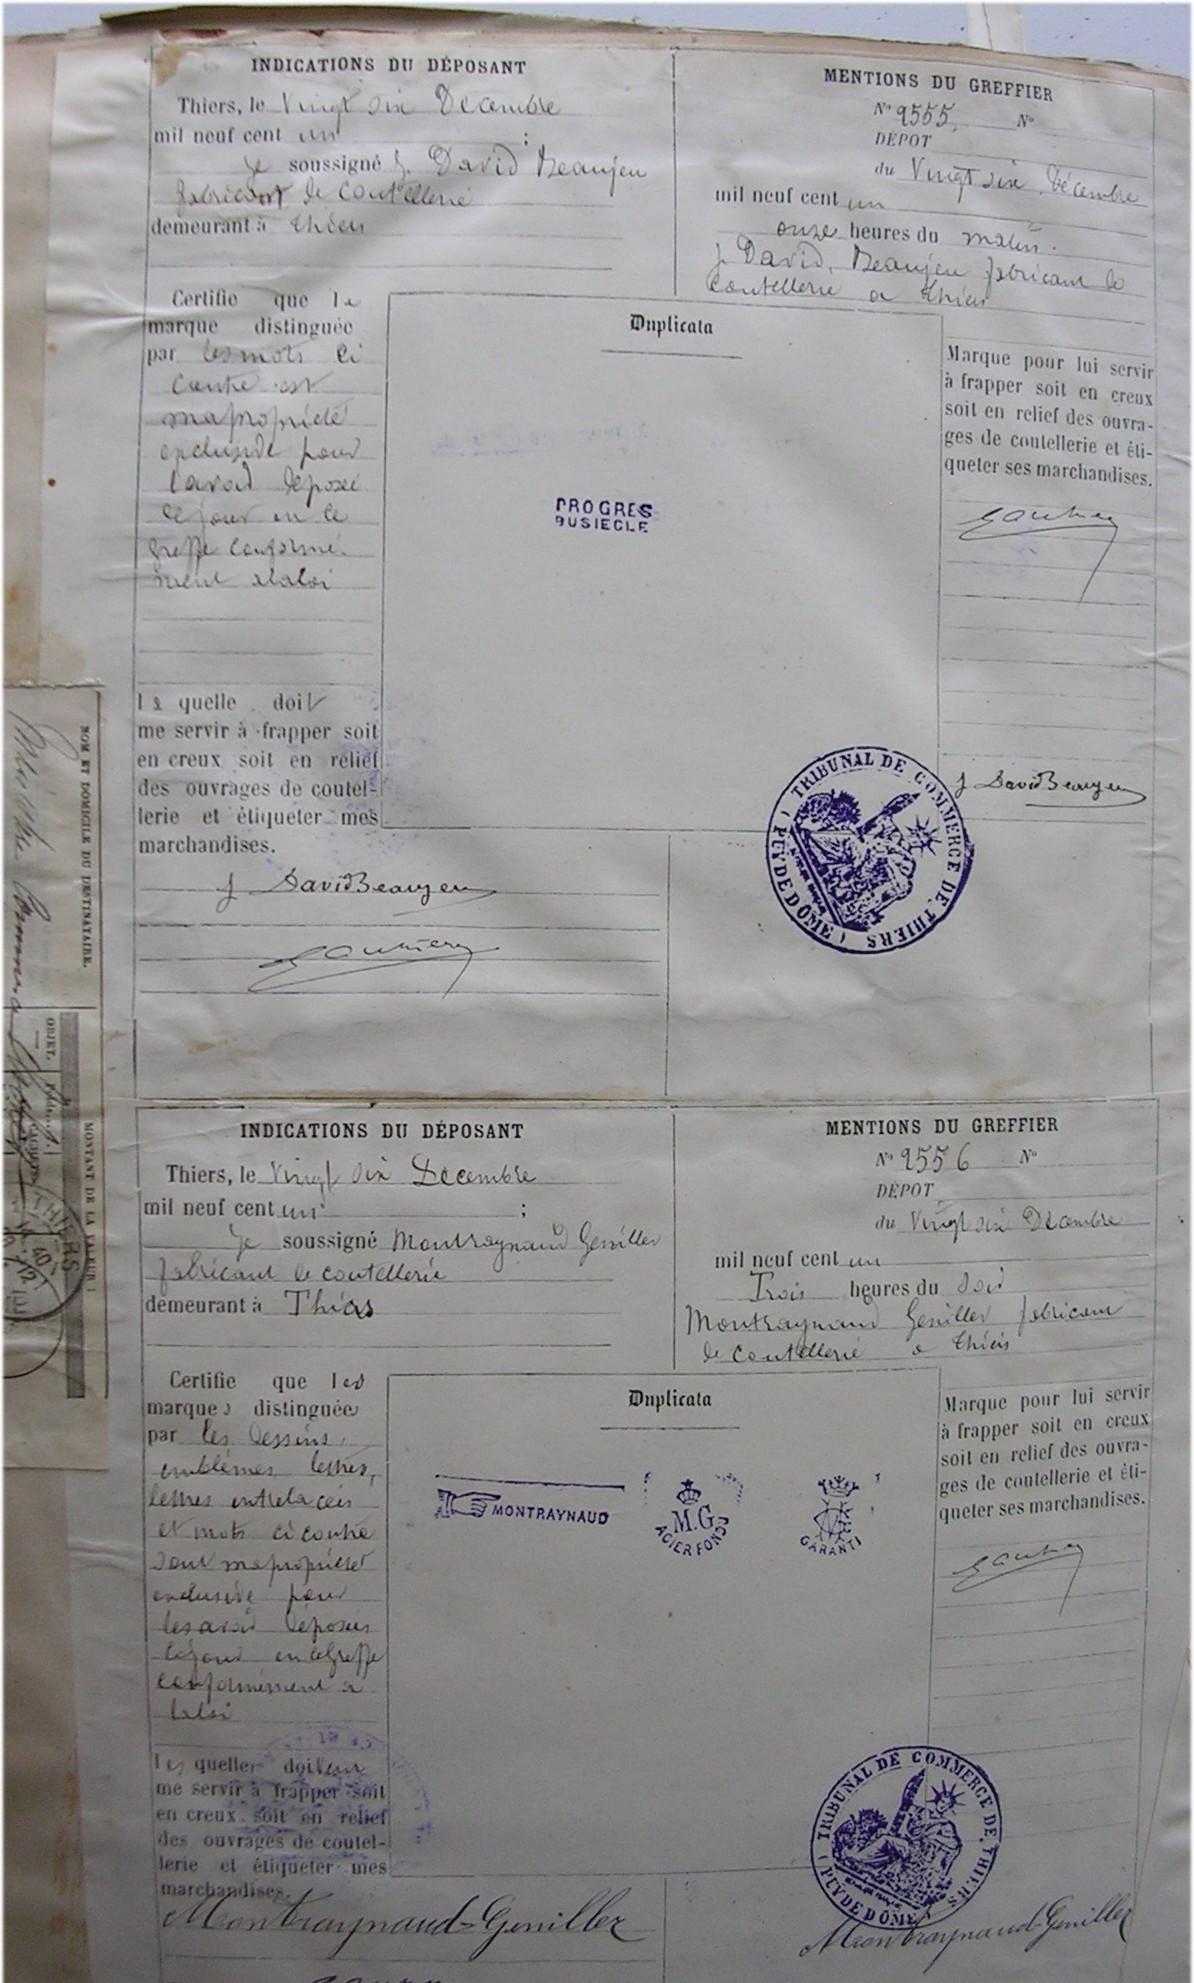 INDICATIONS DU DÉPOSANT
Thiers, le Vingt six Décembre
mil neuf cent un ;
Je soussigné J. David Beaujeu
fabricant de coutellerie
demeurant à Thiers
MENTIONS DU GREFFIER
N° 2555. N°
DÉPOT
du Vingt six Décembre
mil neuf cent un
onze heures du matin.
J. David, Beaujeu fabricant de
coutellerie a Thiers
Certifie que la
marque distinguée
par les mots ci
contre est
ma propriété
exclusive pour
l'avoir déposé
ce jour en ce
greffe conformé-
ment a la loi
la quelle doit
me servir à frapper soit
en creux soit en relief
des ouvrages de coutel-
lerie et étiqueter mes
marchandises.
J David Beaujeu
Duplicata
PROGRES
DU SIECLE
Marque pour lui servir
à frapper soit en creux
soit en relief des ouvra-
ges de coutellerie et éti-
queter ses marchandises.
J David Beaujeu
TRIBUNAL DE COMMERCE DE THIERS
(PUY DE DÔME)
NOM ET DOMICILE DU DESTINATAIRE.
OBJET.
MONTANT DE LA VALEUR :
THIERS
INDICATIONS DU DÉPOSANT
Thiers, le Vingt six Décembre
mil neuf cent un ;
Je soussigné Montraynaud Geniller
fabricant de coutellerie
demeurant à Thiers
MENTIONS DU GREFFIER
N° 2556 N°
DÉPOT
du Vingt six Décembre
mil neuf cent un
Trois heures du soir
Montraynaud Geniller fabricant
de coutellerie a Thiers
Certifie que les
marques distinguées
par les dessins,
emblèmes, lettres,
lettres entrelacées
et mots ci contre
sont ma propriété
exclusive pour
les avoir déposées
ce jour en ce greffe
conformément a
la loi
les quelles doivent
me servir à frapper soit
en creux soit en relief
des ouvrages de coutel-
lerie et étiqueter mes
marchandises.
Montraynaud-Geniller
Duplicata
MONTRAYNAUD
M.G.
ACIER FONDU
GARANTI
Marque pour lui servir
à frapper soit en creux
soit en relief des ouvra-
ges de coutellerie et éti-
queter ses marchandises.
TRIBUNAL DE COMMERCE DE THIERS
(PUY DE DÔME)
Montraynaud-Geniller